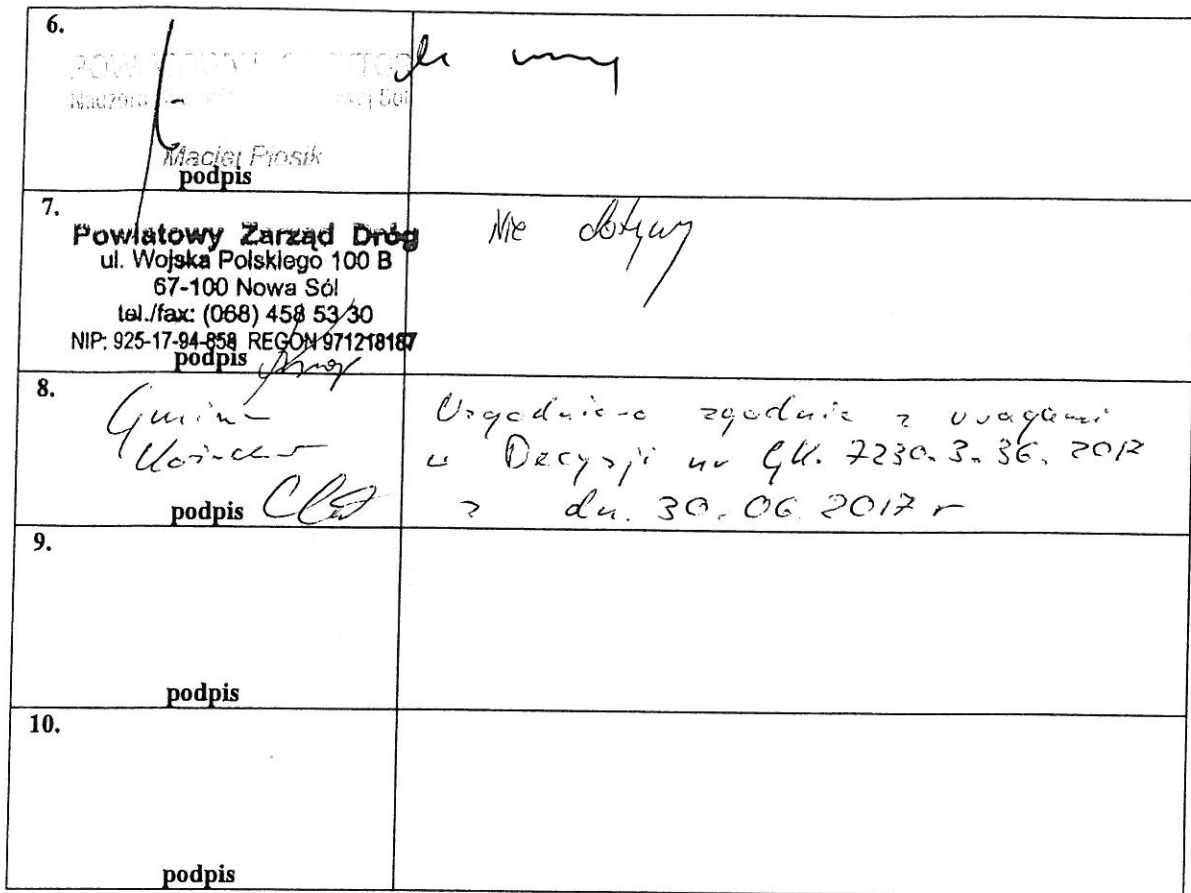 6.
Nadzoru
Maciej Piosik
podpis
7.
Powiatowy Zarząd Dróg
ul. Wojska Polskiego 100 B
67-100 Nowa Sól
tel./fax: (068) 458 53 30
NIP: 925-17-94-858 REGON 971218187
podpis
Nie dotyczy
8.
Gmina
podpis
Uzgodniono zgodnie z uwagami
w Decyzji nr GK. 7230.3.36.2017
z dn. 30.06.2017 r
9.
podpis
10.
podpis